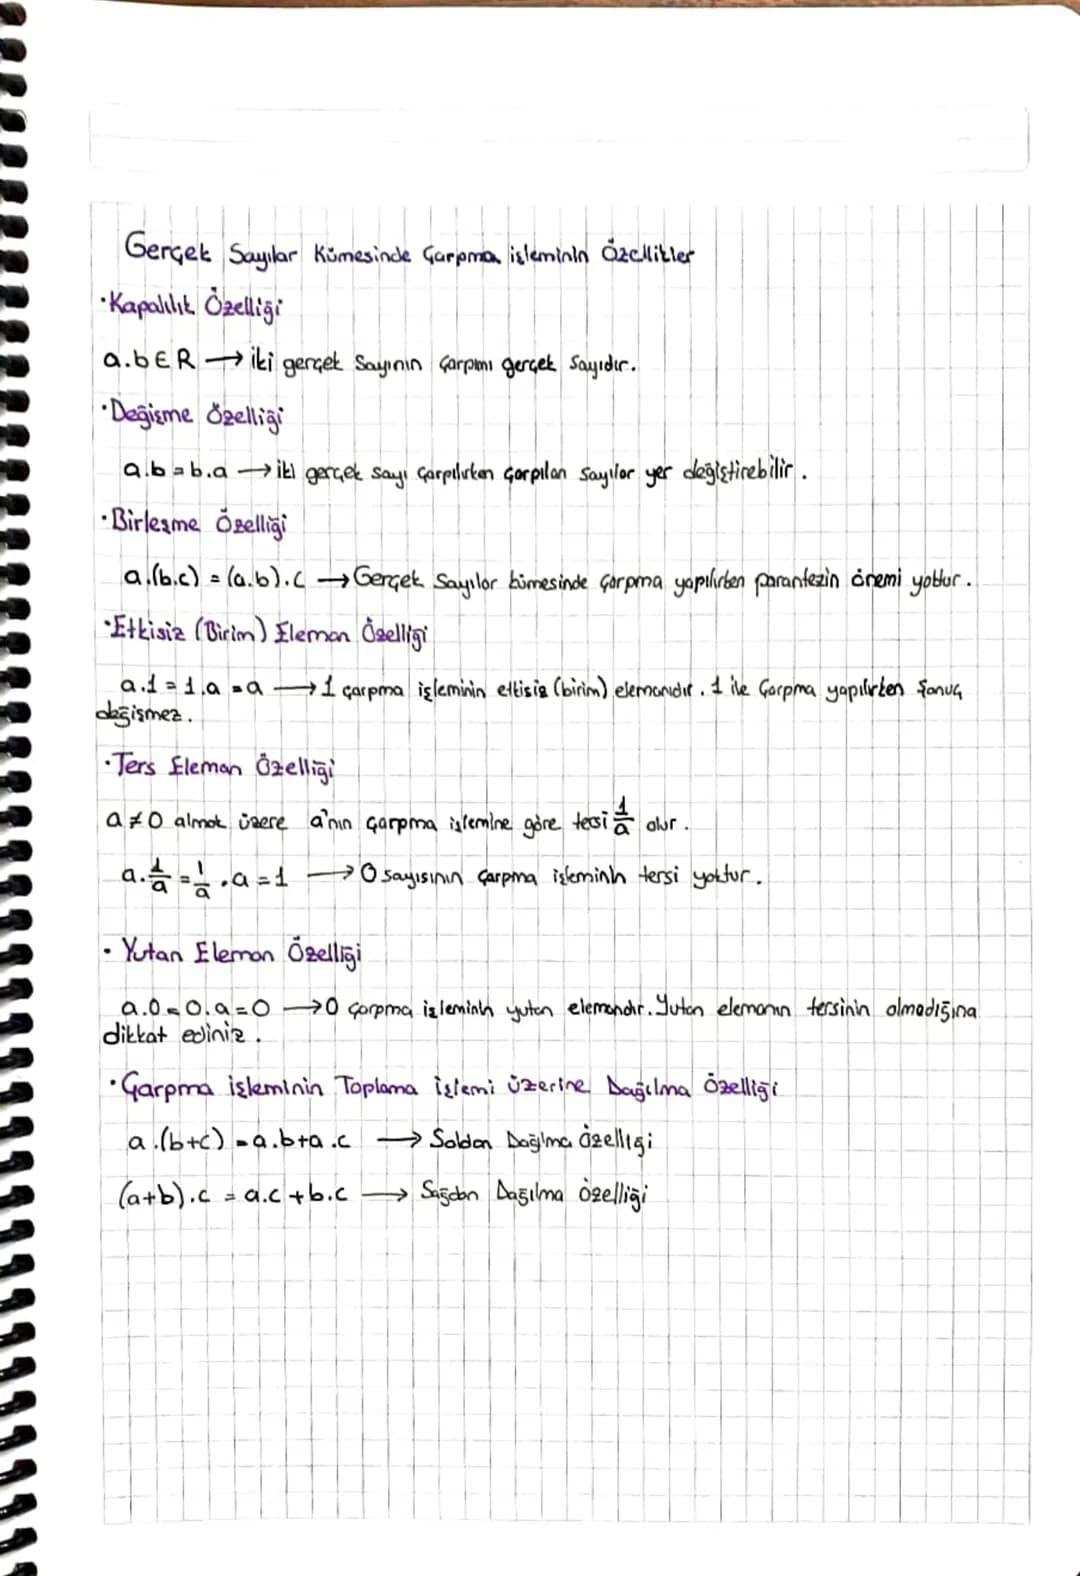 Gerçek Sayılar Kümesinde Çarpma işleminin Özellikler
•Kapalılık Özelliği
a.b∈R → iki gerçek Sayının Çarpımı gerçek Sayıdır.
•Değişme Özelliği
a.b=b.a → iki gerçek sayı Çarpılırken Çarpılan Sayılar yer değiştirebilir.
•Birleşme Özelliği
a.(b.c) = (a.b).c → Gerçek Sayılar kümesinde Çarpma yapılırken parantezin önemi yoktur.
•Etkisiz (Birim) Eleman Özelliği
a.1=1.a=a → 1 çarpma işleminin etkisiz (birim) elemanıdır. 1 ile Çarpma yapılırken Sonuç
değişmez.
•Ters Eleman Özelliği
a≠0 almak üzere a'nın Çarpma işlemine göre tersi 1/a olur.
a.1/a = 1/a.a=1 → 0 sayısının Çarpma işleminin tersi yoktur.
• Yutan Eleman Özelliği
a.0=0.a=0 → 0 çarpma işleminin yutan elemandır. Yutan elemanın tersinin olmadığına
dikkat ediniz.
•Çarpma işleminin Toplama işlemi üzerine Dağılma Özelliği
a.(b+c)=a.b+a.c → Soldan Dağılma özelliği
(a+b).c = a.c+b.c → Sağdan Dağılma özelliği